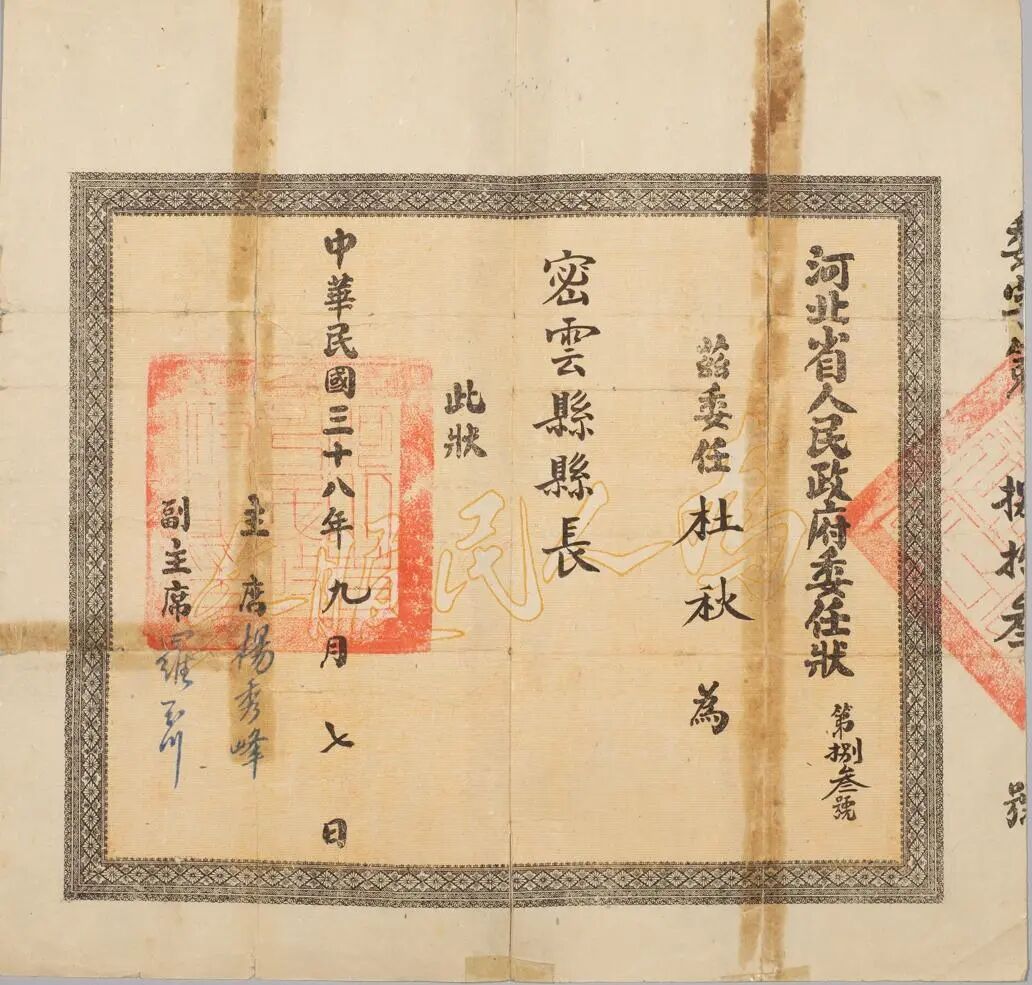 河北省人民政府委任狀
第捌叁號
茲委任杜秋為
密雲縣縣長
此狀
中華民國三十八年九月七日
主席楊秀峰
副主席羅玉川